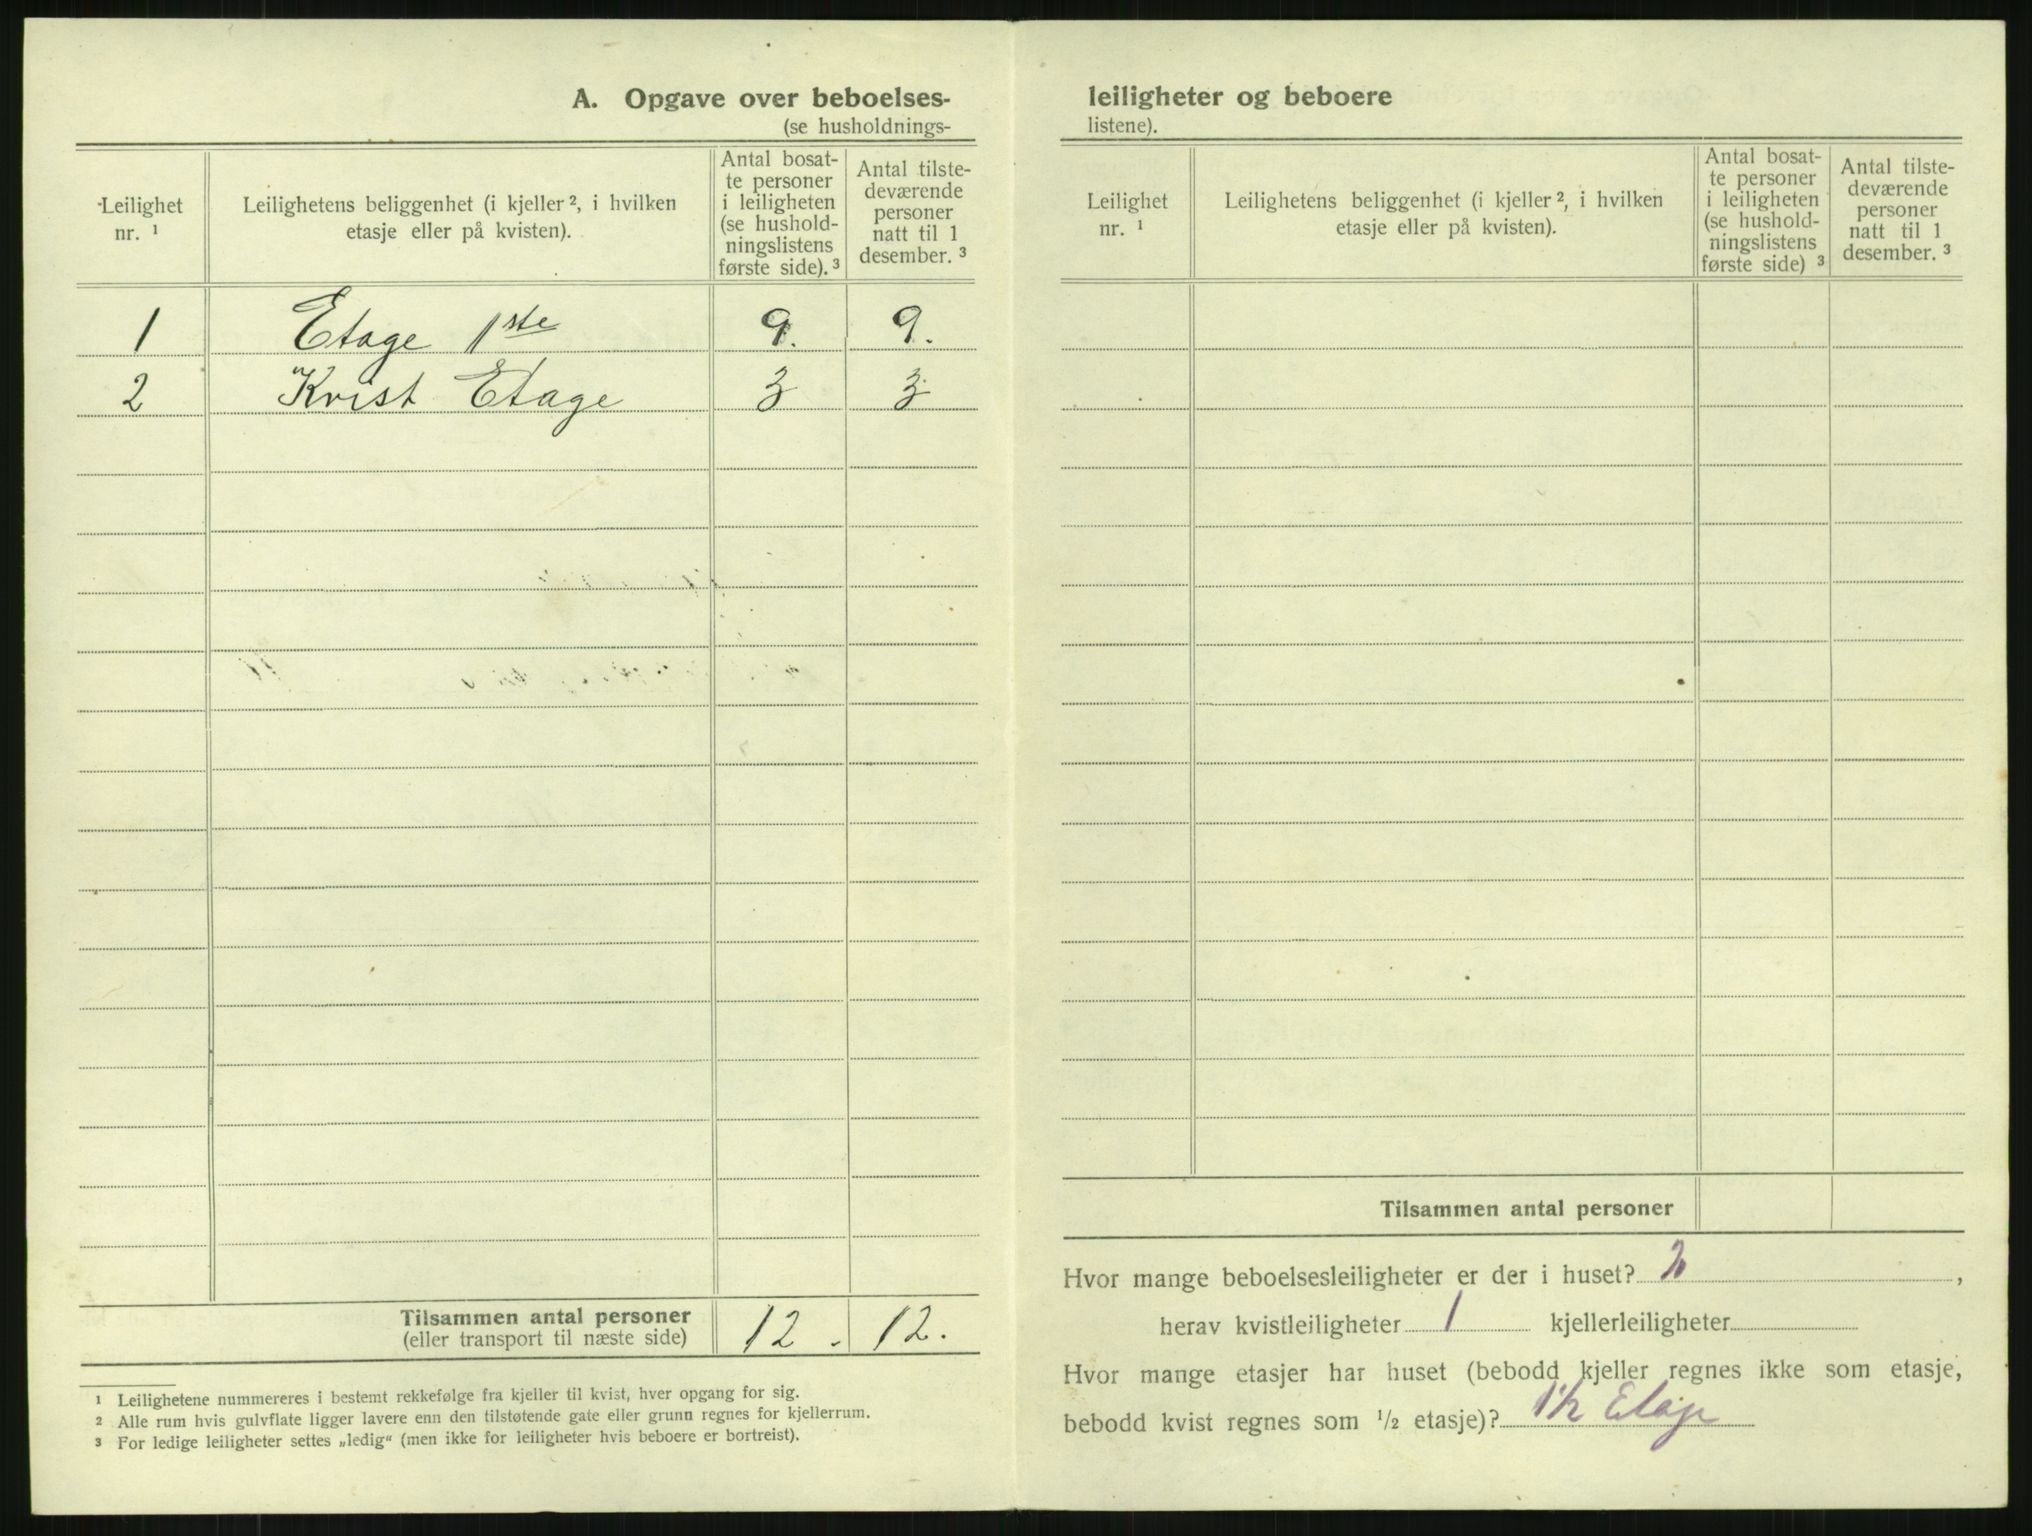 A. Opgave over beboelses-
(se husholdnings-
Leilighet nr. ¹
Leilighetens beliggenhet (i kjeller ², i hvilken etasje eller på kvisten).
Antal bosat-
te personer
i leiligheten
(se hushold-
ningslistens
første side). ³
Antal tilste-
deværende
personer
natt til 1
desember. ³
1 Etage 1ste 9. 9.
2 Kvist Etage 3 3
Tilsammen antal personer
(eller transport til næste side) 12. 12.
¹ Leilighetene nummereres i bestemt rekkefølge fra kjeller til kvist, hver opgang for sig.
² Alle rum hvis gulvflate ligger lavere enn den tilstøtende gate eller grunn regnes for kjellerrum.
³ For ledige leiligheter settes „ledig“ (men ikke for leiligheter hvis beboere er bortreist).
leiligheter og beboere
listene).
Leilighet nr. ¹
Leilighetens beliggenhet (i kjeller ², i hvilken etasje eller på kvisten).
Antal bosat-
te personer
i leiligheten
(se hushold-
ningslistens
første side) ³
Antal tilste-
deværende
personer
natt til 1
desember. ³
Tilsammen antal personer
Hvor mange beboelsesleiligheter er der i huset? 2,
herav kvistleiligheter 1 kjellerleiligheter
Hvor mange etasjer har huset (bebodd kjeller regnes ikke som etasje,
bebodd kvist regnes som ½ etasje)? 1½ Etage